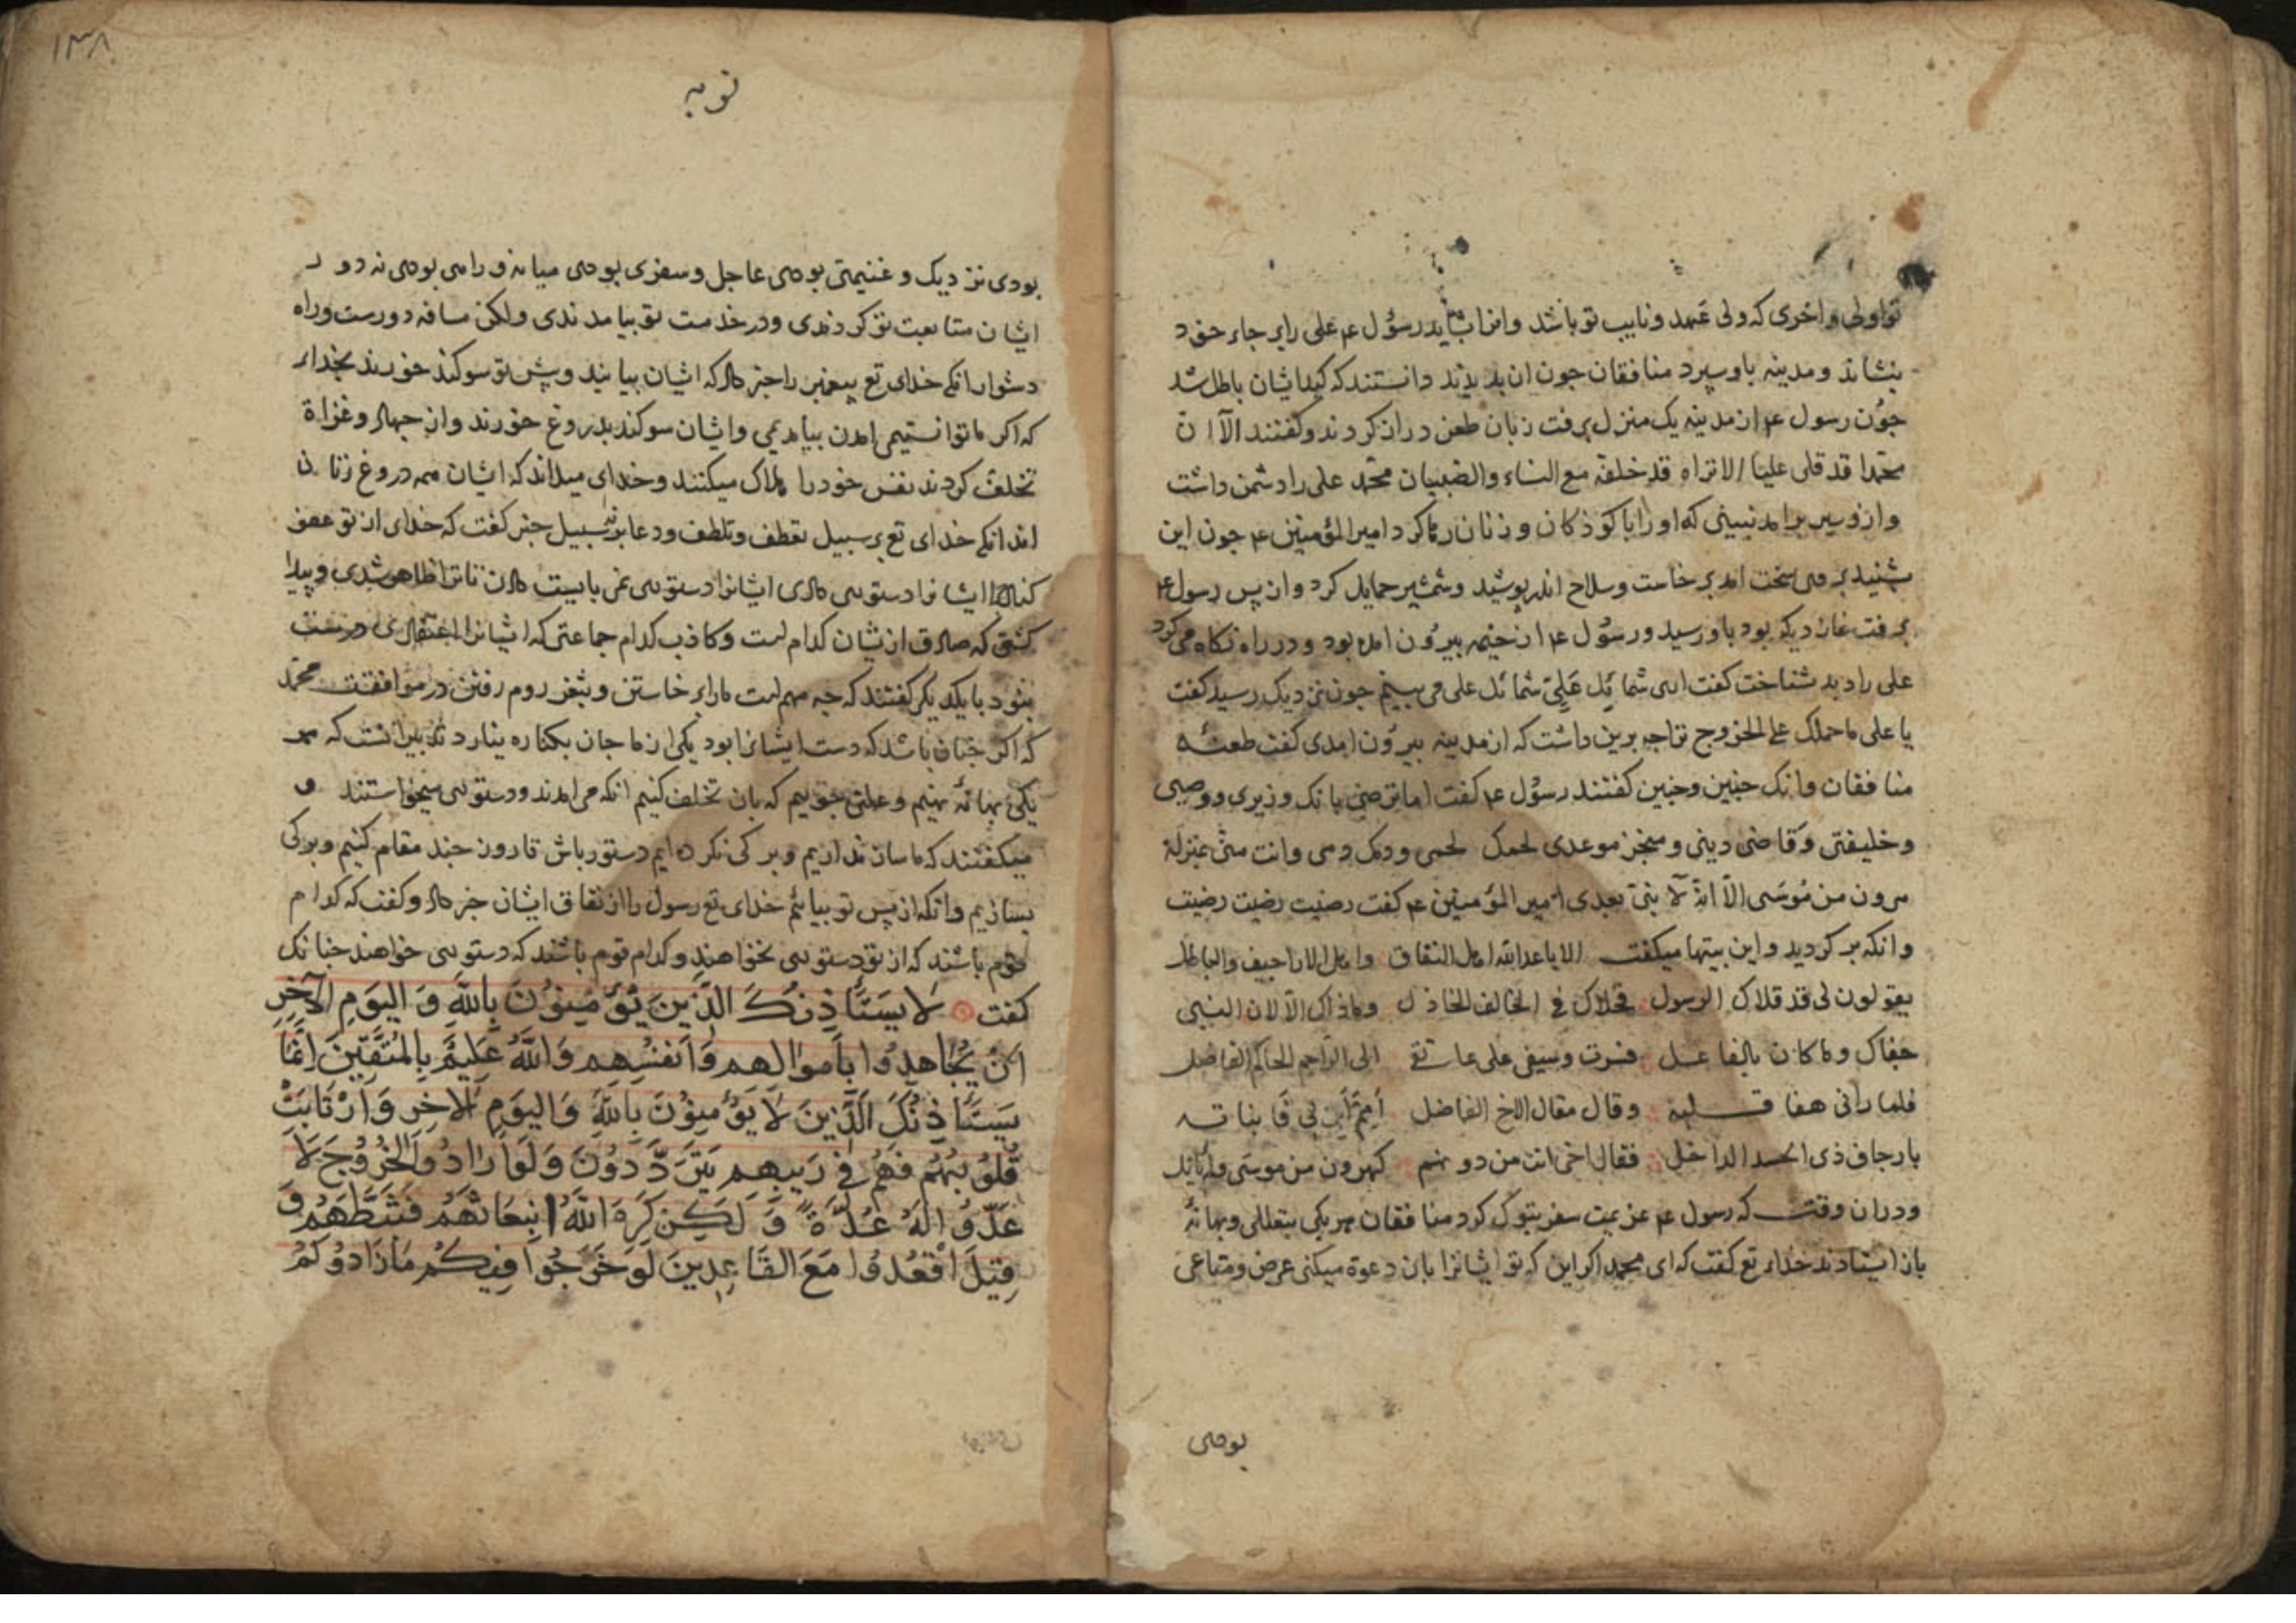 تو اولی و احری که ولی عهد و نایب تو باشد و انرا شاید رسول ع علی را بر جاء خود
بنشاند و مدینه باو سپرد منافقان جون ان بدیدند دانستند که کید ایشان باطل شد
جون رسول ع از مدینه یک منزل برفت زبان طعن دراز کردند و کفتند الا ان
محمدا قد قلی علیا الا تراه قد خلفه مع النساء والصبیان محمد علی را دشمن داشت
و ازو سیر برامد نبینی که او را با کوذکان و زنان رها کرد امیر المؤمنین ع جون این
بشنید بر وی سخت امد برخاست و سلاح اندر پوشید و شمشیر حمایل کرد و از پس رسول ع
برفت نماز دیکر بود باو رسید و رسول ع از خیمه بیرون امده بود و در راه نکاه می کرد
علی را دید شناخت کفت اری شمائل علی شمائل علی می بینم جون نزدیک رسید کفت
یا علی ما حملک علی الخروج ترا جه برین داشت که از مدینه بیرون امدی کفت طعنه
منافقان وانک جنین و جنین کفتند رسول ع کفت اما ترضی بانک وزیری و وصیی
و خلیفتی و قاضی دینی و منجز موعدی لحمک لحمی و دمک دمی و انت منی بمنزلة
هرون من موسی الا انه لا نبی بعدی امیر المؤمنین ع کفت رضیت رضیت رضیت
و انکه بر کردید و این بیتها میکفت الا باعد الله اهل النفاق و اهل الاراجیف والباطل
یقولون لی قد قلاک الرسول فخلاک فی الخالف الخاذل وما ذاک الا لان النبی
جفاک وما کان بالفاعل فسرت وسیفی علی عاتقی الی الراحم الحاکم الفاضل
فلما رانی هفا قلبه وقال مقال الاخ الفاضل
بارجاف ذی الحسد الداخل فقال اخی انت من دونهم کهرون من موسی ولم یاتل
و دران وقت که رسول ع عزیمت سفر تبوک کرد منافقان هر یکی بتعللی و بهانۀ
باز ایستادند خداء تع کفت که ای محمد اکر این که تو ایشانرا بان دعوة میکنی عرض و متاعی
بودی
١٣٨
توبه
بودی نزدیک و غنیمتی بودی عاجل و سفری بودی میانه و راهی بودی نه دور
ایشان متابعت تو کردندی و در خدمت تو بیامدندی ولکن مسافه دورست و راه
دشوار انکه خدای تع پیغمبر را خبر داد که ایشان بیایند و پیش تو سوکند خورند بخداء
که اکر ما توانستیمی امدن بیامدیمی و ایشان سوکند بدروغ خورند و از جهاد و غزاة
تخلف کردند نفس خود را هلاک میکنند و خدای میداند که ایشان همه دروغ زنان
اند انکه خدای تع بر سبیل تعطف و تلطف و دعا بر سبیل خبر کفت که خدای از تو عفو
کناد جرا ایشانرا دستوری دادی ایشانرا دستوری نمی بایست دادن تا ترا ظاهر شدی و پیدا
کشتی که صادق ازیشان کدام است و کاذب کدام جماعتی که ایشانرا اعتقادی درست
نبود با یکدیکر کفتند که جه مهم است ما را برخاستن و بثغر روم رفتن در موافقت محمد
که اکر جنان باشد که دست ایشانرا بود یکی از ما جان بکناره نیارد تدبیر انست که هر
یکی بهانۀ نهیم و علتی جوییم که بان تخلف کنیم انکه می امدند و دستوری میخواستند و
میکفتند که ما ساز نداریم و برکی نکرده ایم دستور باش تا روزی جند مقام کنیم و برکی
بسازیم و انکه از پس تو بیائیم خدای تع رسول را از نفاق ایشان خبر داد و کفت که کدام
قوم باشند که از تو دستوری نخواهند و کدام قوم باشند که دستوری خواهند جنانک
کفت لَا یَسْتَأْذِنُکَ الَّذِینَ یُؤْمِنُونَ بِاللَّهِ وَ الیَومِ الآخِرِ
اَنْ یُجَاهِدُوا بِاَموالِهِم وَاَنفُسِهِم وَاللَّهُ عَلِیمٌ بِالمُتَّقِینَ اِنَّمَا
یَسْتَأْذِنُکَ الَّذِینَ لَا یُؤْمِنُونَ بِاللَّهِ وَالیَومِ الاخِرِ وَارْتَابَتْ
قُلُوبُهُم فَهُم فِی رَیبِهِم یَتَرَدَّدُونَ وَلَو اَرَادُوا الخُرُوجَ لَا
عَدُّوا لَهُ عُدَّةً وَلَکِن کَرِهَ اللَّهُ انبِعَاثَهُم فَثَبَّطَهُم وَ
قِیلَ اقْعُدُوا مَعَ القَاعِدِینَ لَو خَرَجُوا فِیکُم مَا زَادُوکُم